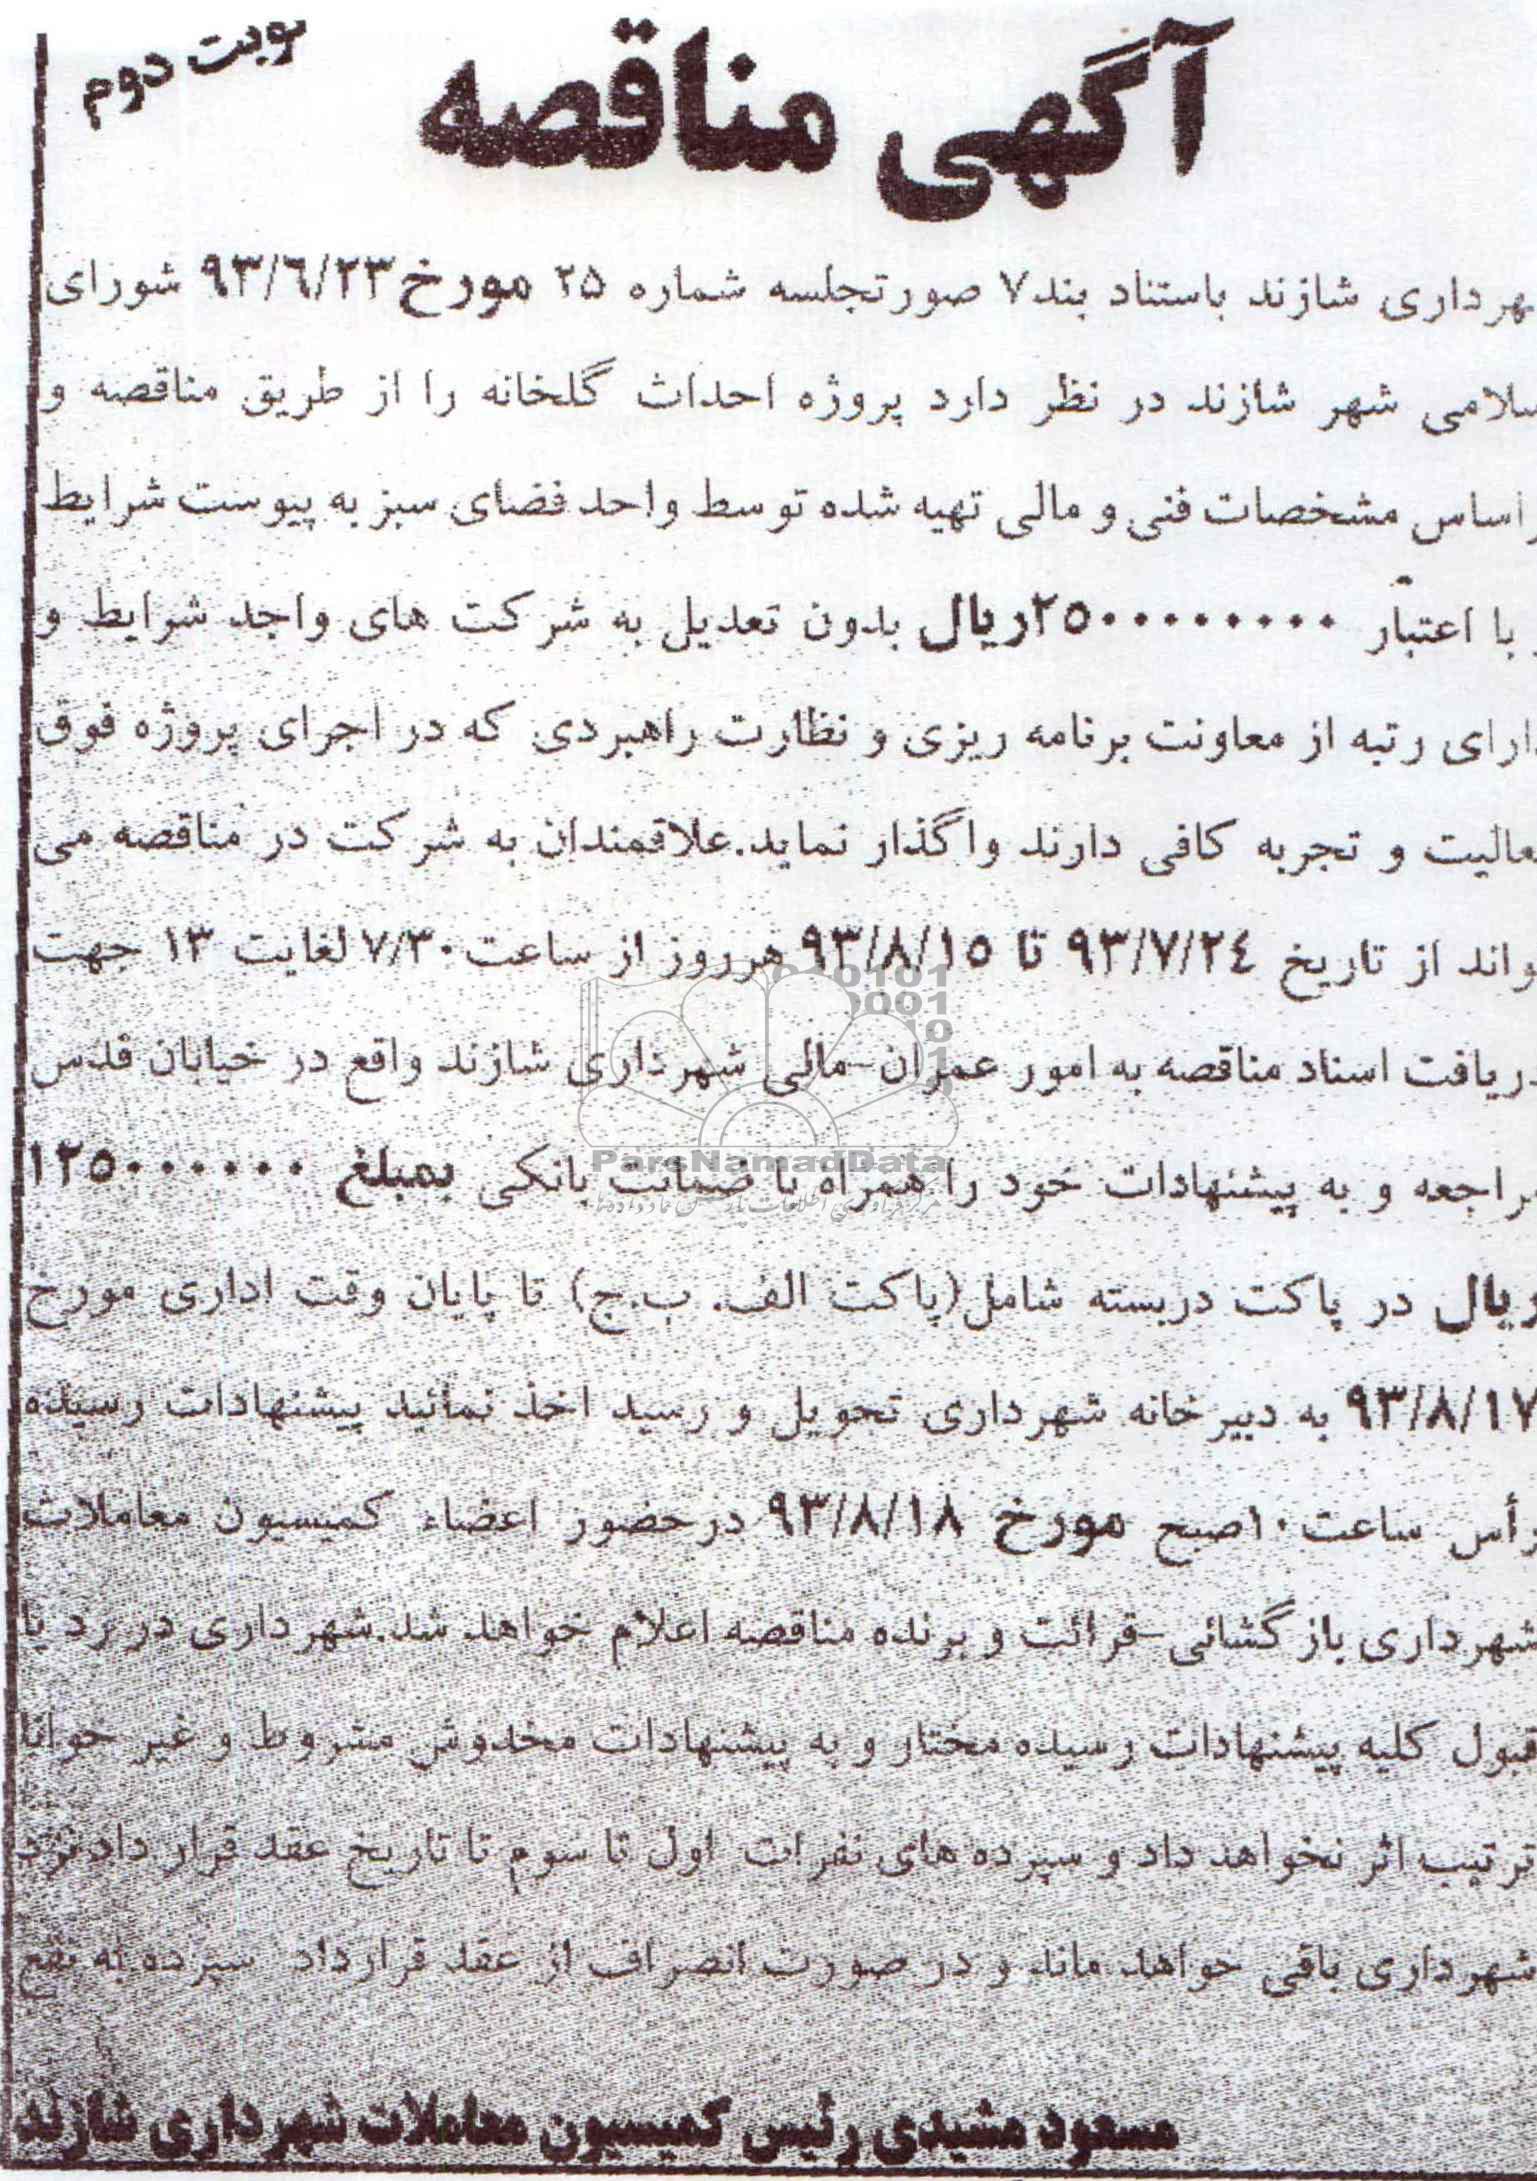 نوبت دوم
آگهی مناقصه
هرداری شازند باستناد بند۷ صورتجلسه شماره ۲۵ مورخ ۹۳/۶/۲۳ شورای
سلامی شهر شازند در نظر دارد پروژه احداث گلخانه را از طریق مناقصه و
راساس مشخصات فنی و مالی تهیه شده توسط واحد فضای سبز به پیوست شرایط
با اعتبار ۲۵۰۰۰۰۰۰۰۰۰ریال بدون تعدیل به شرکت های واجد شرایط و
دارای رتبه از معاونت برنامه ریزی و نظارت راهبردی که در اجرای پروژه فوق
عالیت و تجربه کافی دارند واگذار نماید.علاقمندان به شرکت در مناقصه می
واند از تاریخ ۹۳/۷/۲۴ تا ۹۳/۸/۱۵ هرروز از ساعت ۷/۳۰ لغایت ۱۳ جهت
دریافت اسناد مناقصه به امور عمران-مالی شهرداری شازند واقع در خیابان قدس
راجعه و به پیشنهادات خود را همراه با ضمانت بانکی بمبلغ ۱۲۵۰۰۰۰۰۰۰
ریال در پاکت دربسته شامل(پاکت الف. ب.ج) تا پایان وقت اداری مورخ
۹۳/۸/۱۷ به دبیرخانه شهرداری تحویل و رسید اخذ نمائید پیشنهادات رسیده
رأس ساعت ۱۰صبح مورخ ۹۳/۸/۱۸ درحضور اعضاء کمیسیون معاملات
شهرداری بازگشائی-قرائت و برنده مناقصه اعلام خواهد شد.شهرداری در رد یا
قبول کلیه پیشنهادات رسیده مختار و به پیشنهادات مخدوش مشروط و غیر خوانا
ترتیب اثر نخواهد داد و سپرده های نفرات اول تا سوم تا تاریخ عقد قرار داد نزد
شهرداری باقی خواهد ماند و در صورت انصراف از عقد قرارداد سپرده به نفع
مسعود مشیدی رئیس کمیسیون معاملات شهرداری شازند
ParsNamadData